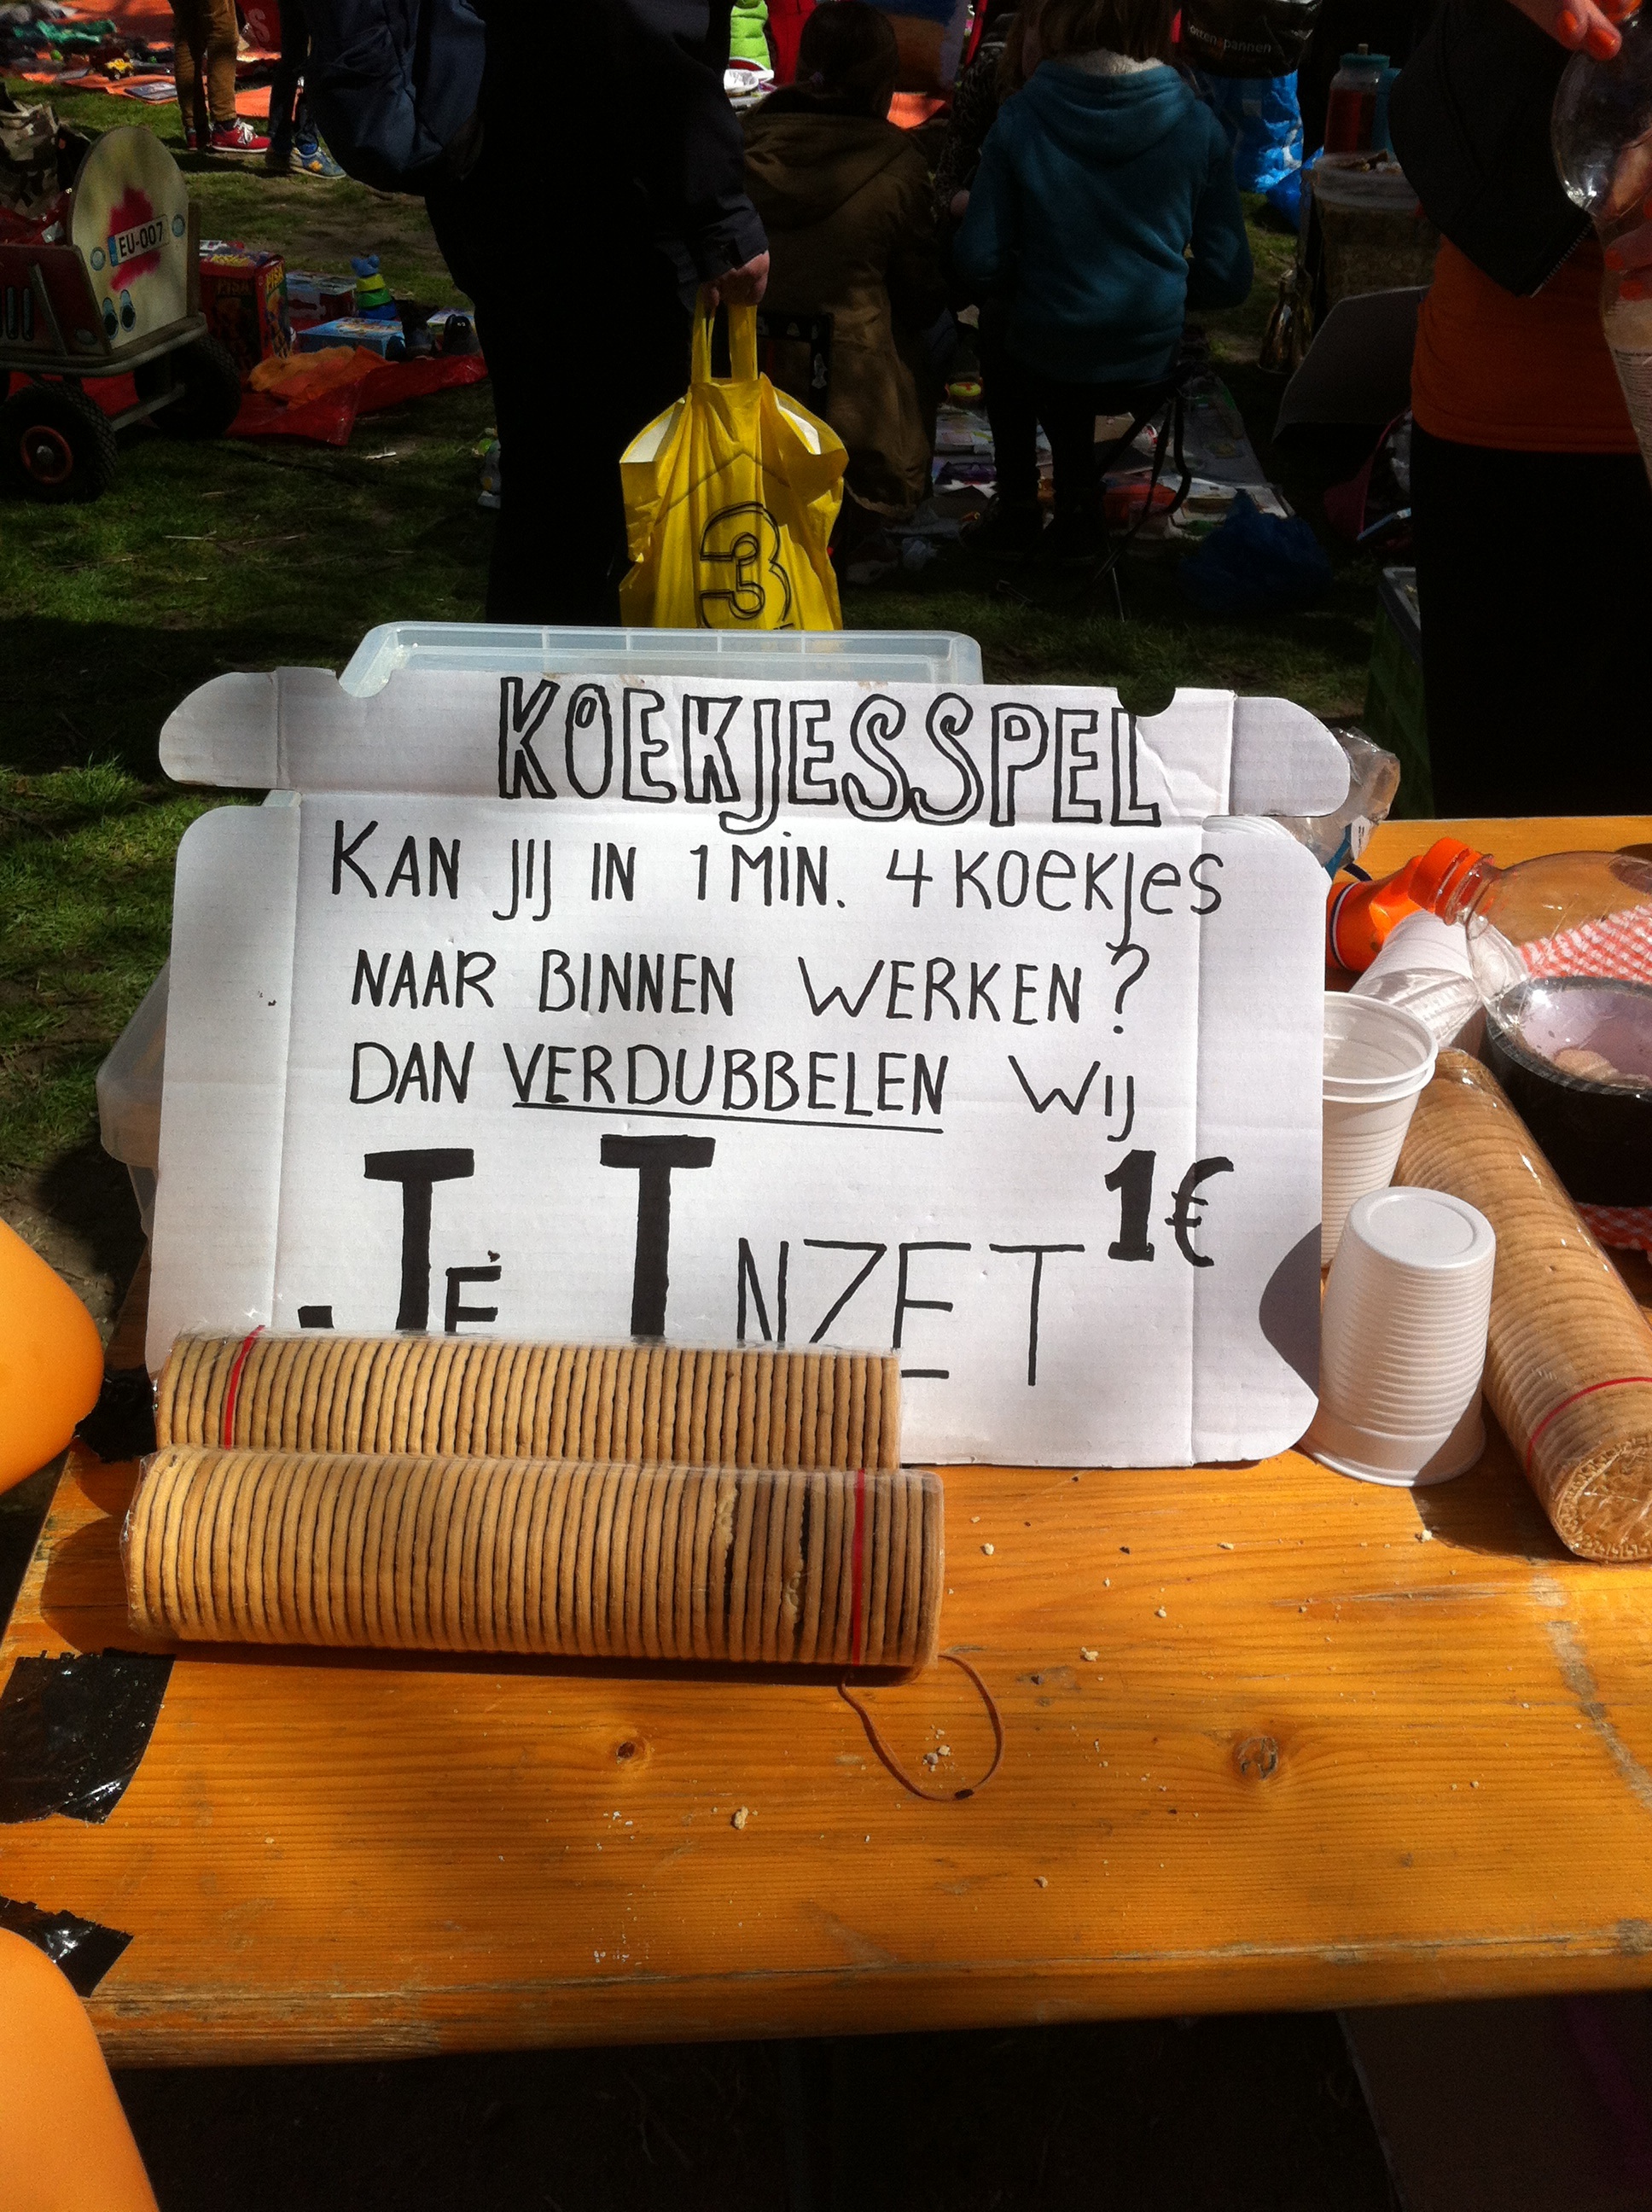 ottenspannen
EU-007
3
KOEKJESSPEL
KAN JIJ IN 1 MIN. 4 KOEKJES
NAAR BINNEN WERKEN?
DAN VERDUBBELEN WIJ
JE INZET 1€